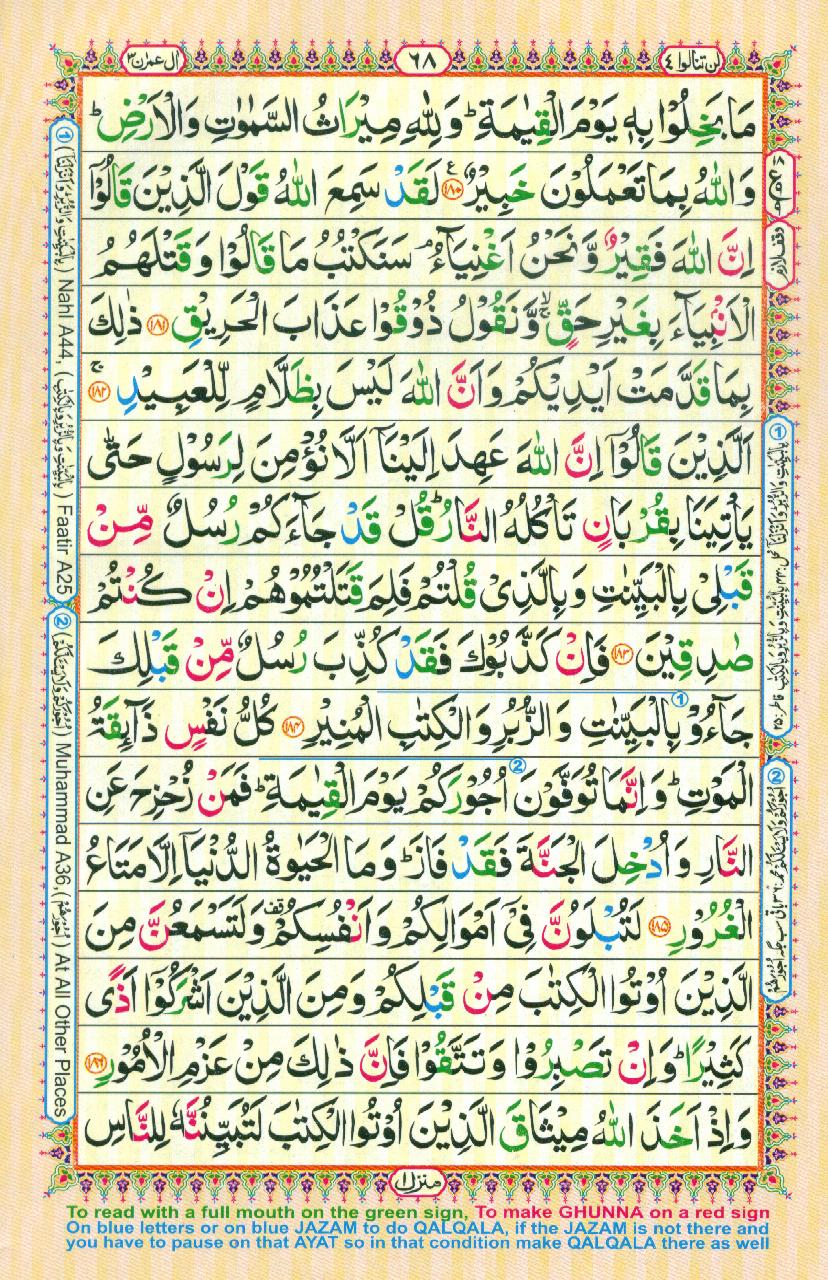 لن تنالوا ٤
٦٨
اٰل عمرٰن ٣
مَا بَخِلُوْا بِهٖ يَوْمَ الْقِيٰمَةِ ؕ وَلِلّٰهِ مِيْرَاثُ السَّمٰوٰتِ وَالْاَرْضِ ؕ
وَاللّٰهُ بِمَا تَعْمَلُوْنَ خَبِيْرٌ ﴿۱۸۰﴾ لَقَدْ سَمِعَ اللّٰهُ قَوْلَ الَّذِيْنَ قَالُوْۤا
اِنَّ اللّٰهَ فَقِيْرٌ وَّنَحْنُ اَغْنِيَآءُ ۘ سَنَكْتُبُ مَا قَالُوْا وَقَتْلَهُمُ
الْاَنْۢبِيَآءَ بِغَيْرِ حَقٍّ ۙ وَّنَقُوْلُ ذُوْقُوْا عَذَابَ الْحَرِيْقِ ﴿۱۸۱﴾ ذٰلِكَ
بِمَا قَدَّمَتْ اَيْدِيْكُمْ وَاَنَّ اللّٰهَ لَيْسَ بِظَلَّامٍ لِّلْعَبِيْدِ ﴿۱۸۲﴾ ۚ
اَلَّذِيْنَ قَالُوْۤا اِنَّ اللّٰهَ عَهِدَ اِلَيْنَاۤ اَلَّا نُؤْمِنَ لِرَسُوْلٍ حَتّٰى
يَاْتِيَنَا بِقُرْبَانٍ تَاْكُلُهُ النَّارُ ؕ قُلْ قَدْ جَآءَكُمْ رُسُلٌ مِّنْ
قَبْلِىْ بِالْبَيِّنٰتِ وَبِالَّذِىْ قُلْتُمْ فَلِمَ قَتَلْتُمُوْهُمْ اِنْ كُنْتُمْ
صٰدِقِيْنَ ﴿۱۸۳﴾ فَاِنْ كَذَّبُوْكَ فَقَدْ كُذِّبَ رُسُلٌ مِّنْ قَبْلِكَ
جَآءُوْ بِالْبَيِّنٰتِ وَالزُّبُرِ وَالْكِتٰبِ الْمُنِيْرِ ﴿۱۸۴﴾ كُلُّ نَفْسٍ ذَآئِقَةُ
الْمَوْتِ ؕ وَاِنَّمَا تُوَفَّوْنَ اُجُوْرَكُمْ يَوْمَ الْقِيٰمَةِ ؕ فَمَنْ زُحْزِحَ عَنِ
النَّارِ وَاُدْخِلَ الْجَنَّةَ فَقَدْ فَازَ ؕ وَمَا الْحَيٰوةُ الدُّنْيَاۤ اِلَّا مَتَاعُ
الْغُرُوْرِ ﴿۱۸۵﴾ لَتُبْلَوُنَّ فِىْۤ اَمْوَالِكُمْ وَاَنْفُسِكُمْ ۟ وَلَتَسْمَعُنَّ مِنَ
الَّذِيْنَ اُوْتُوا الْكِتٰبَ مِنْ قَبْلِكُمْ وَمِنَ الَّذِيْنَ اَشْرَكُوْۤا اَذًى
كَثِيْرًا ؕ وَاِنْ تَصْبِرُوْا وَتَتَّقُوْا فَاِنَّ ذٰلِكَ مِنْ عَزْمِ الْاُمُوْرِ ﴿۱۸۶﴾
وَاِذْ اَخَذَ اللّٰهُ مِيْثَاقَ الَّذِيْنَ اُوْتُوا الْكِتٰبَ لَتُبَيِّنُنَّهٗ لِلنَّاسِ
منزل ١
وقف لازم
① (بِالْبَيِّنٰتِ وَالزُّبُرِ وَاَنْزَلْنَاۤ) Nahl A44, (بِالْبَيِّنٰتِ وَبِالزُّبُرِ وَبِالْكِتٰبِ) Faatir A25
② Muhammad A36, (اُجُوْرَهُمْ) At All Other Places
To read with a full mouth on the green sign, To make GHUNNA on a red sign
On blue letters or on blue JAZAM to do QALQALA, if the JAZAM is not there and
you have to pause on that AYAT so in that condition make QALQALA there as well